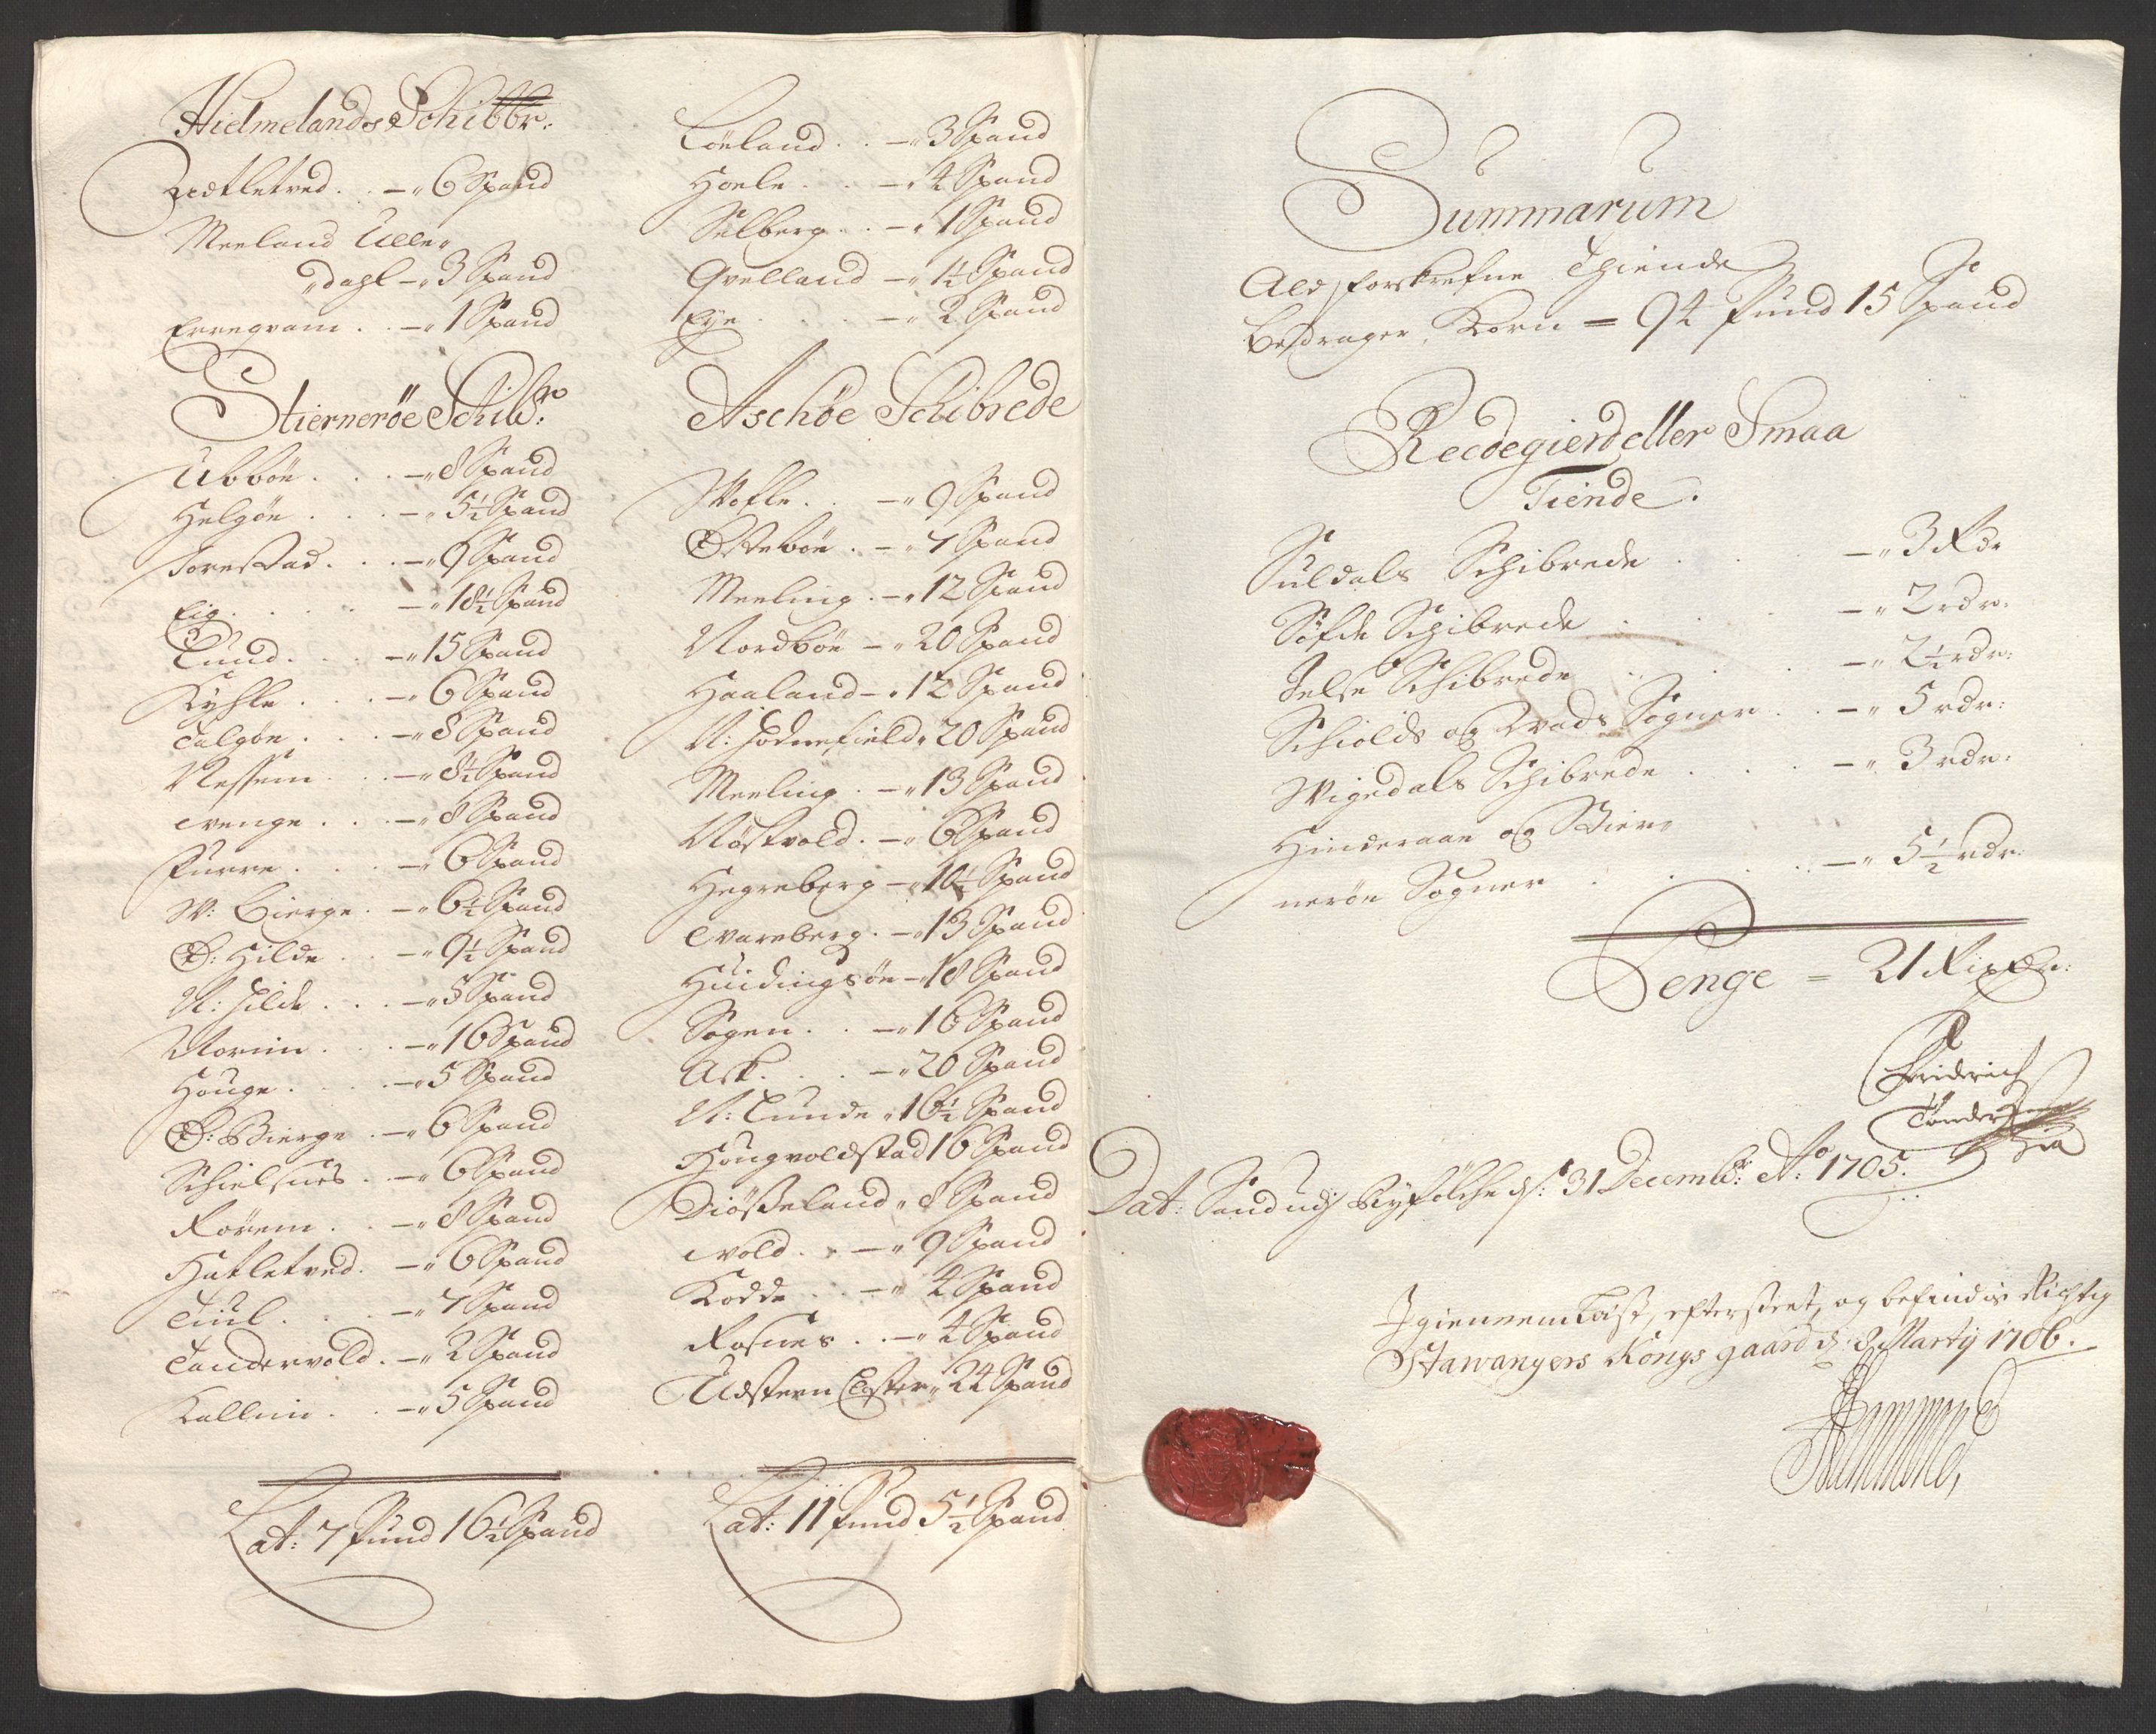 Hielmelands Schibbr:
Hatletved . . —„ 6 Spand
Meeland Ulle„
„dahl —„ 3 Spand
Erregram . . —„ 1 Spand
Stiernerøe Schibr:
Ubbøe . . . —„ 8 Spand
Helgøe . . . —„ 5½ Spand
Forestad . . . —„ 9 Spand
Eig . . . . —„ 18½ Spand
Lund . . . —„ 15 Spand
Kyhle . . . —„ 6 Spand
Talgøe . . . —„ 8 Spand
Nessem . . —„ 8½ Spand
Evenge . . —„ 8 Spand
Furre . . . —„ 6 Spand
W: Bierge . —„ 6½ Spand
Ø: Hilde . . —„ 9½ Spand
N: Hilde . . . —„ 5 Spand
Norum . . . —„ 16 Spand
Houge . . . . —„ 5 Spand
Ø: Bierge . —„ 6 Spand
Schielsnes . —„ 6 Spand
Rørem . . —„ 8 Spand
Hatletved . —„ 6 Spand
Tiul . . . —„ 7 Spand
Tandervold . —„ 2 Spand
Kallem . . —„ 5 Spand
Lat: 7 Pund 16½ Spand
Løeland . . —„ 3 Spand
Hoele . . . —„ 4 Spand
Selberg . . —„ 1 Spand
Qvelland —„ 1½ Spand
Eye . . . —„ 2 Spand
Aschøe Schibrede
Wofle . . —„ 9 Spand
Østebøe . —„ 7 Spand
Meeling . —„ 12 Spand
Nordbøe —„ 20 Spand
Haaland —„ 12 Spand
N: Hodnefield „ 20 Spand
Meeling . —„ 13 Spand
Nøstvold . —„ 6 Spand
Hegreberg —„ 10½ Spand
Evareberg . —„ 13 Spand
Huidingsøe —„ 18 Spand
Sogen . . —„ 16 Spand
Ask . . . —„ 20 Spand
N: Lunde „ 16½ Spand
Hougvoldstad 16 Spand
Diøsseland „ 8 Spand
Evold . . —„ 9 Spand
Kodde . . —„ 4 Spand
Rosnes . . —„ 4 Spand
Udstein Closter „ 24 Spand
Lat: 11 Pund 5½ Spand
Summarum
Ald forskrefne Thiende
Bedrager Korn = 94 Pund 15 Spand
Reedegierd eller Smaa
Tiende.
Suldals Schibrede . . —„ 3 Rdr
Søfde Schibrede . . —„ 2 rdr:
Jelse Schibrede . . . —„ 2½ rdr:
Schiolds og Wads Sogner . . —„ 5 rdr:
Wigedals Schibrede . . . —„ 3 rdr:
Hinderaae og Stier„
nerøe Sogner . . . . —„ 5½ rdr:
Penge = 21 Rixdlr:
Friderich
Tønder
Dat: Sand udj Ryfølche d: 31 Decembr: Ao: 1705.
Igiennemlæst, efterseet, og befindis Richtig
Stawangers Kongs gaard d: 8 Martij 1706.